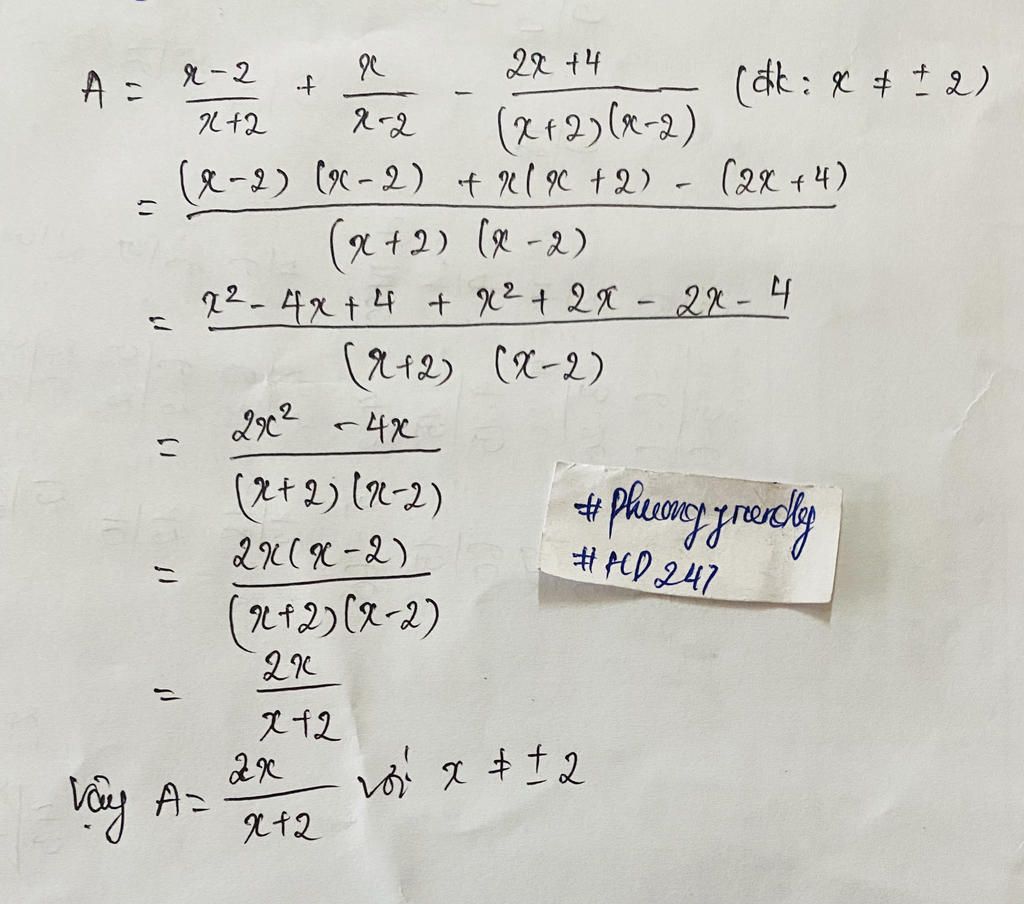 A = \frac{x-2}{x+2} + \frac{x}{x-2} - \frac{2x+4}{(x+2)(x-2)} (đk: x ≠ ± 2)
= \frac{(x-2)(x-2) + x(x+2) - (2x+4)}{(x+2)(x-2)}
= \frac{x^2 - 4x + 4 + x^2 + 2x - 2x - 4}{(x+2)(x-2)}
= \frac{2x^2 - 4x}{(x+2)(x-2)}
= \frac{2x(x-2)}{(x+2)(x-2)}
#HD247
= \frac{2x}{x+2}
Vậy A = \frac{2x}{x+2} với x ≠ ± 2